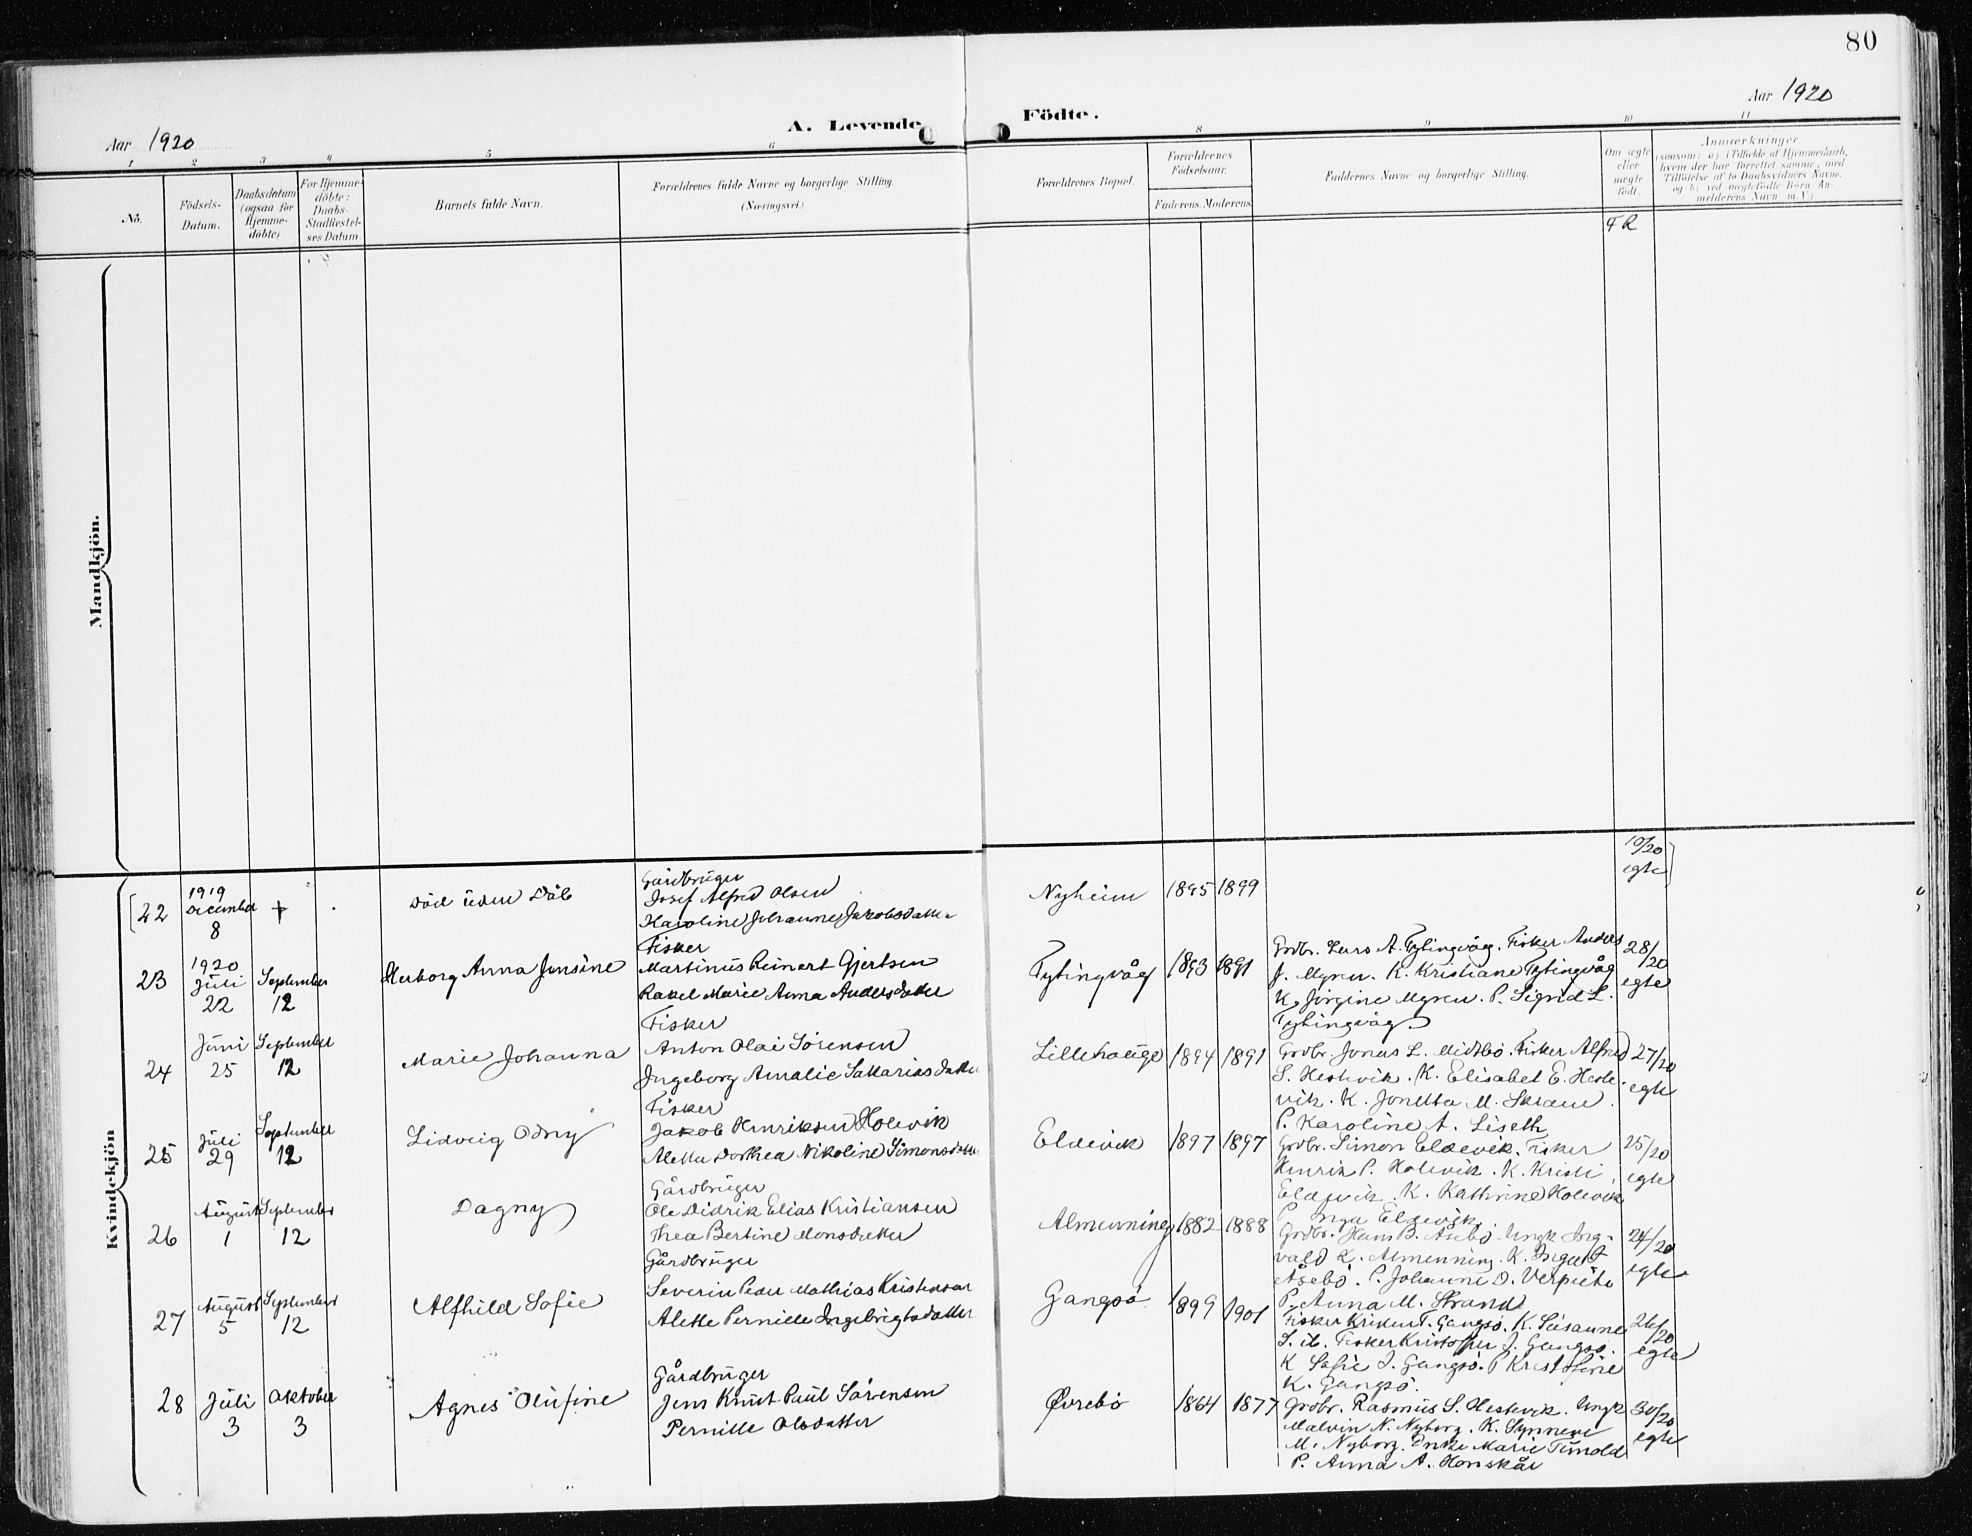 80
Aar 1920
Aar 1920
A. Levende Födte.
1 2 3 4 5 6 8 9 10 11
No.
Födsels-Datum.
Daabsdatum (ogsaa for Hjemme-döbte)
For Hjemme-döbte: Daabs-Stadfæstel-ses Datum.
Barnets fulde Navn.
Forældrenes fulde Navne og borgerlige Stilling.
(Næringsvei.)
Forældrenes Bopæl.
Forældrenes Födselsaar.
Faderens. Moderens.
Faddernes Navne og borgerlige Stilling.
Om ægte eller uægte födt.
Anmærkninger
(saasom: a) i Tilfælde af Hjemmedaab,
hvem der har forrettet samme, med
Tilföielse af to Daabsvidners Navne.
og b) ved uægtefödte Börn An-
melderens Navn m. V.)
F R
Mandkjön.
Kvindekjön
22
1919
December
8
+
Död uden Dåb
Gårdbruger
Josef Alfred Olsen
Karoline Johanne Jakobsdatter
Nyheim
1895 1899
10/20
egte
23
1920
Juli
22
September
12
Herborg Anna Jensine
Fisker
Martinus Reinert Gjertsen
Rakel Marie Anna Andersdatter
Tytingvåg
1893 1891
Grdbr. Lars A. Tytingvåg. Fisker Anders
J. Myren. K. Kristiane Tytingvåg
K. Jörgine Myren. P. Sigrid L.
Tytingvåg
28/20
egte
24
Juni
25
September
12
Marie Johanna
Fisker
Anton Olai Sörensen
Ingeborg Amalie Sakkariasdatter
Lillehauge
1894 1891
Grdbr. Jonas L. Midtbö. Fisker Alfred
S. Hestvik. K. Elisabet E. Heste-
vik. K. Jonetta M. Skram.
P. Karoline A. Liseth
27/20
egte
25
Juli
29
September
12
Lidveig Odny
Fisker
Jakob Henriksen Holevik
Aletta Dorthea Nikoline Simonsdatter
Eldevik
1897 1897
Grdbr. Simon Eldevik. Fisker
Henrik P. Holevik. K. Kristi
Eldevik. K. Kathrine Holevik
P. Inga Eldevik.
25/20
egte
26
August
1
September
12
Dagny
Gårdbruger
Ole Didrik Elias Kristiansen
Thea Bertine Monsdatter
Almenning
1882 1888
Grdbr. Hans B. Åsebö. Ungk. Ing-
vald K. Almenning. K.
Åsebö. P. Johanne O.
P. Anna M. Strand
24/20
egte
27
August
5
September
12
Alfhild Sofie
Gårdbruger
Severin Peder Mathias Kristensen
Alette Pernille Ingebrigtsdatter
Gangsö
1899 1901
Fisker Kristen T. Gangsö. K. Susanne
S. Fisker Kristoffer J. Gangsö.
K. Sofie J. Gangsö. P. Kristofine
K. Gangsö.
26/20
egte
28
Juli
3
Oktober
3
Agnes Olufine
Gårdbruger
Jens Knut Paul Sörensen
Pernille Olsdatter
Øvrebö
1864 1877
Grdbr. Rasmus S. Hestevik. Ungk.
Malvin N. Nyborg. K. Synneve
M. Nyborg. Enke Marie Timold
P. Anna A. Hornskår
30/20
egte